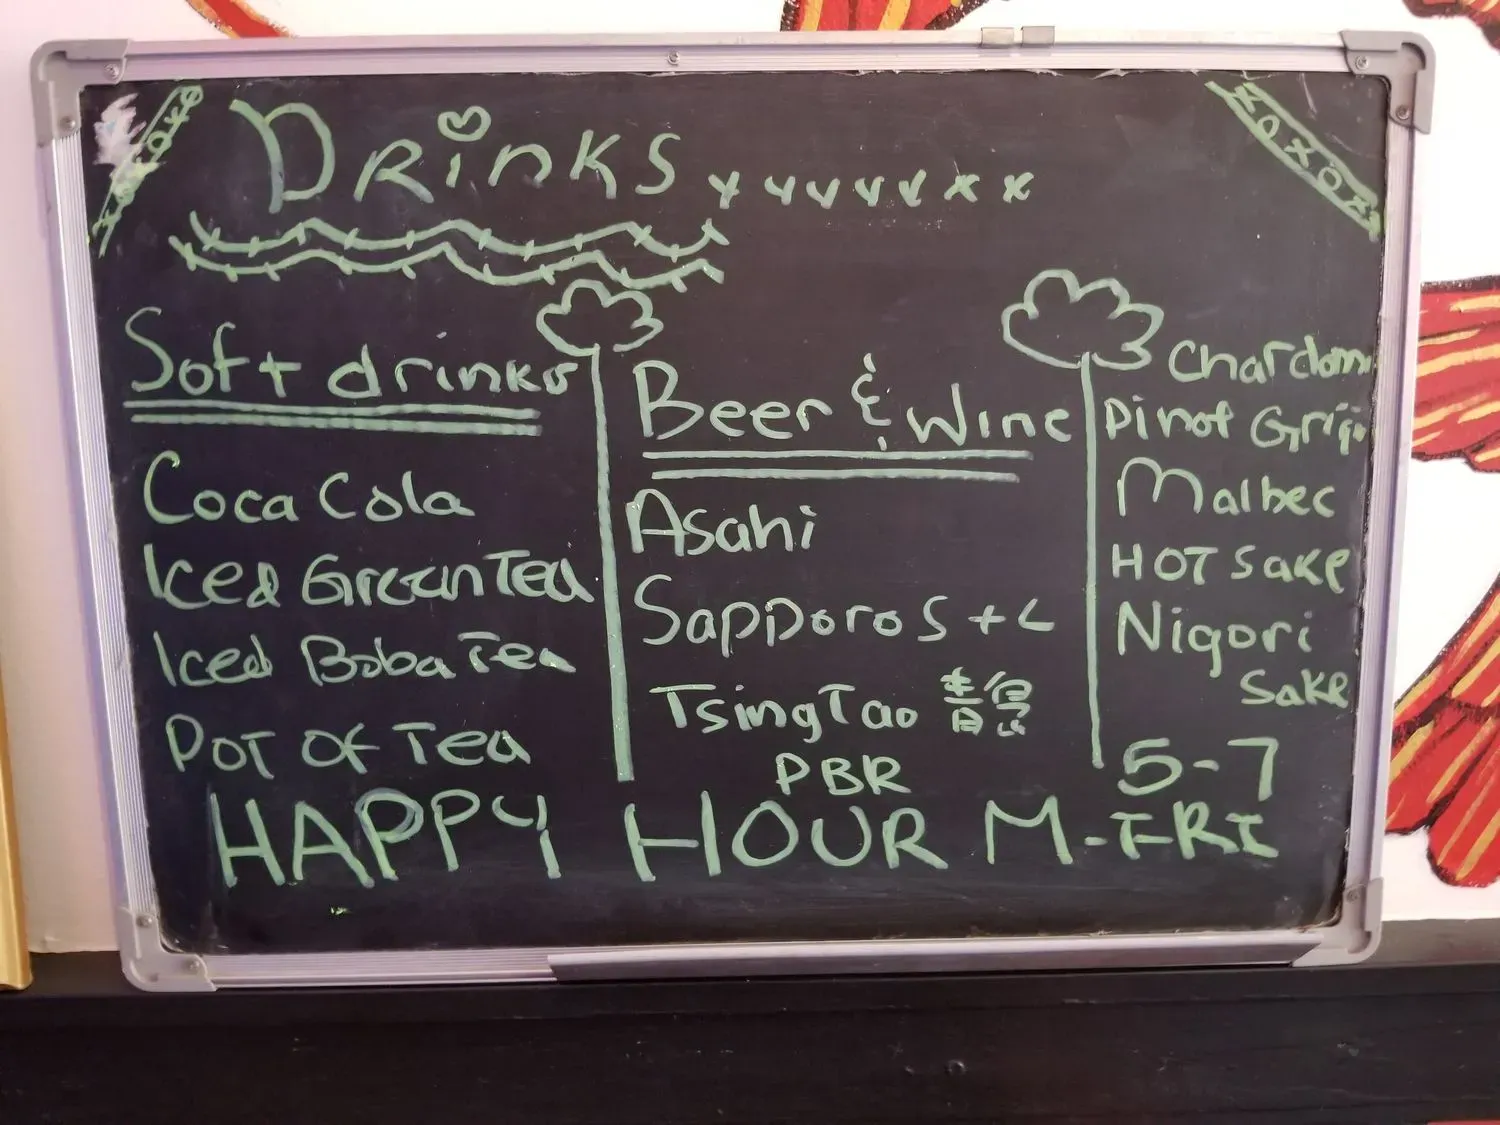 Drinks
Soft drinks
Coca Cola
Iced Green Tea
Iced Boba Tea
Pot of Tea
Beer & Wine
Asahi
Sapporo S + L
TsingTao
PBR
Pinot
Malbec
HOT Sake
Nigori
Sake
5-7
HAPPY HOUR M-FRI